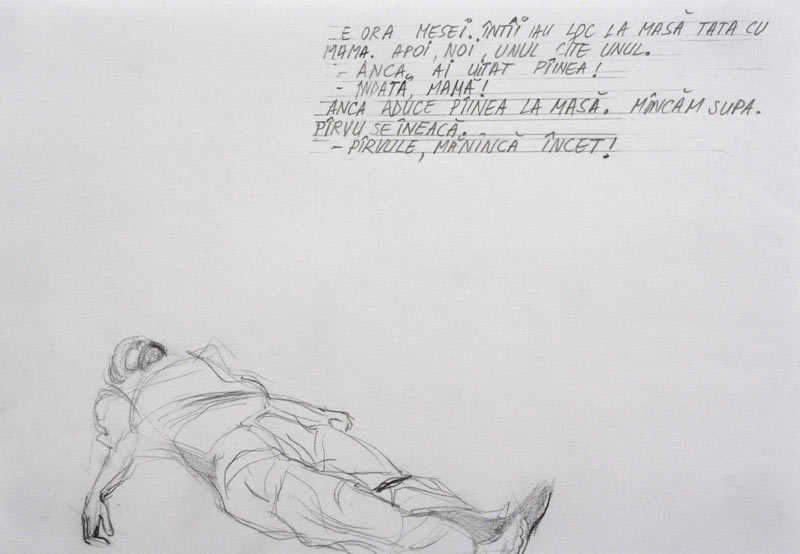 E ORA MESEI. ÎNTÎI IAU LOC LA MASĂ TATA CU
MAMA. APOI, NOI, UNUL CÎTE UNUL.
- ANCA, AI UITAT PÎINEA!
- ÎNDATĂ, MAMĂ!
ANCA ADUCE PÎINEA LA MASĂ. MÎNCĂM SUPA.
PÎRVU SE ÎNEACĂ.
- PÎRVULE, MĂNÎNCĂ ÎNCET!